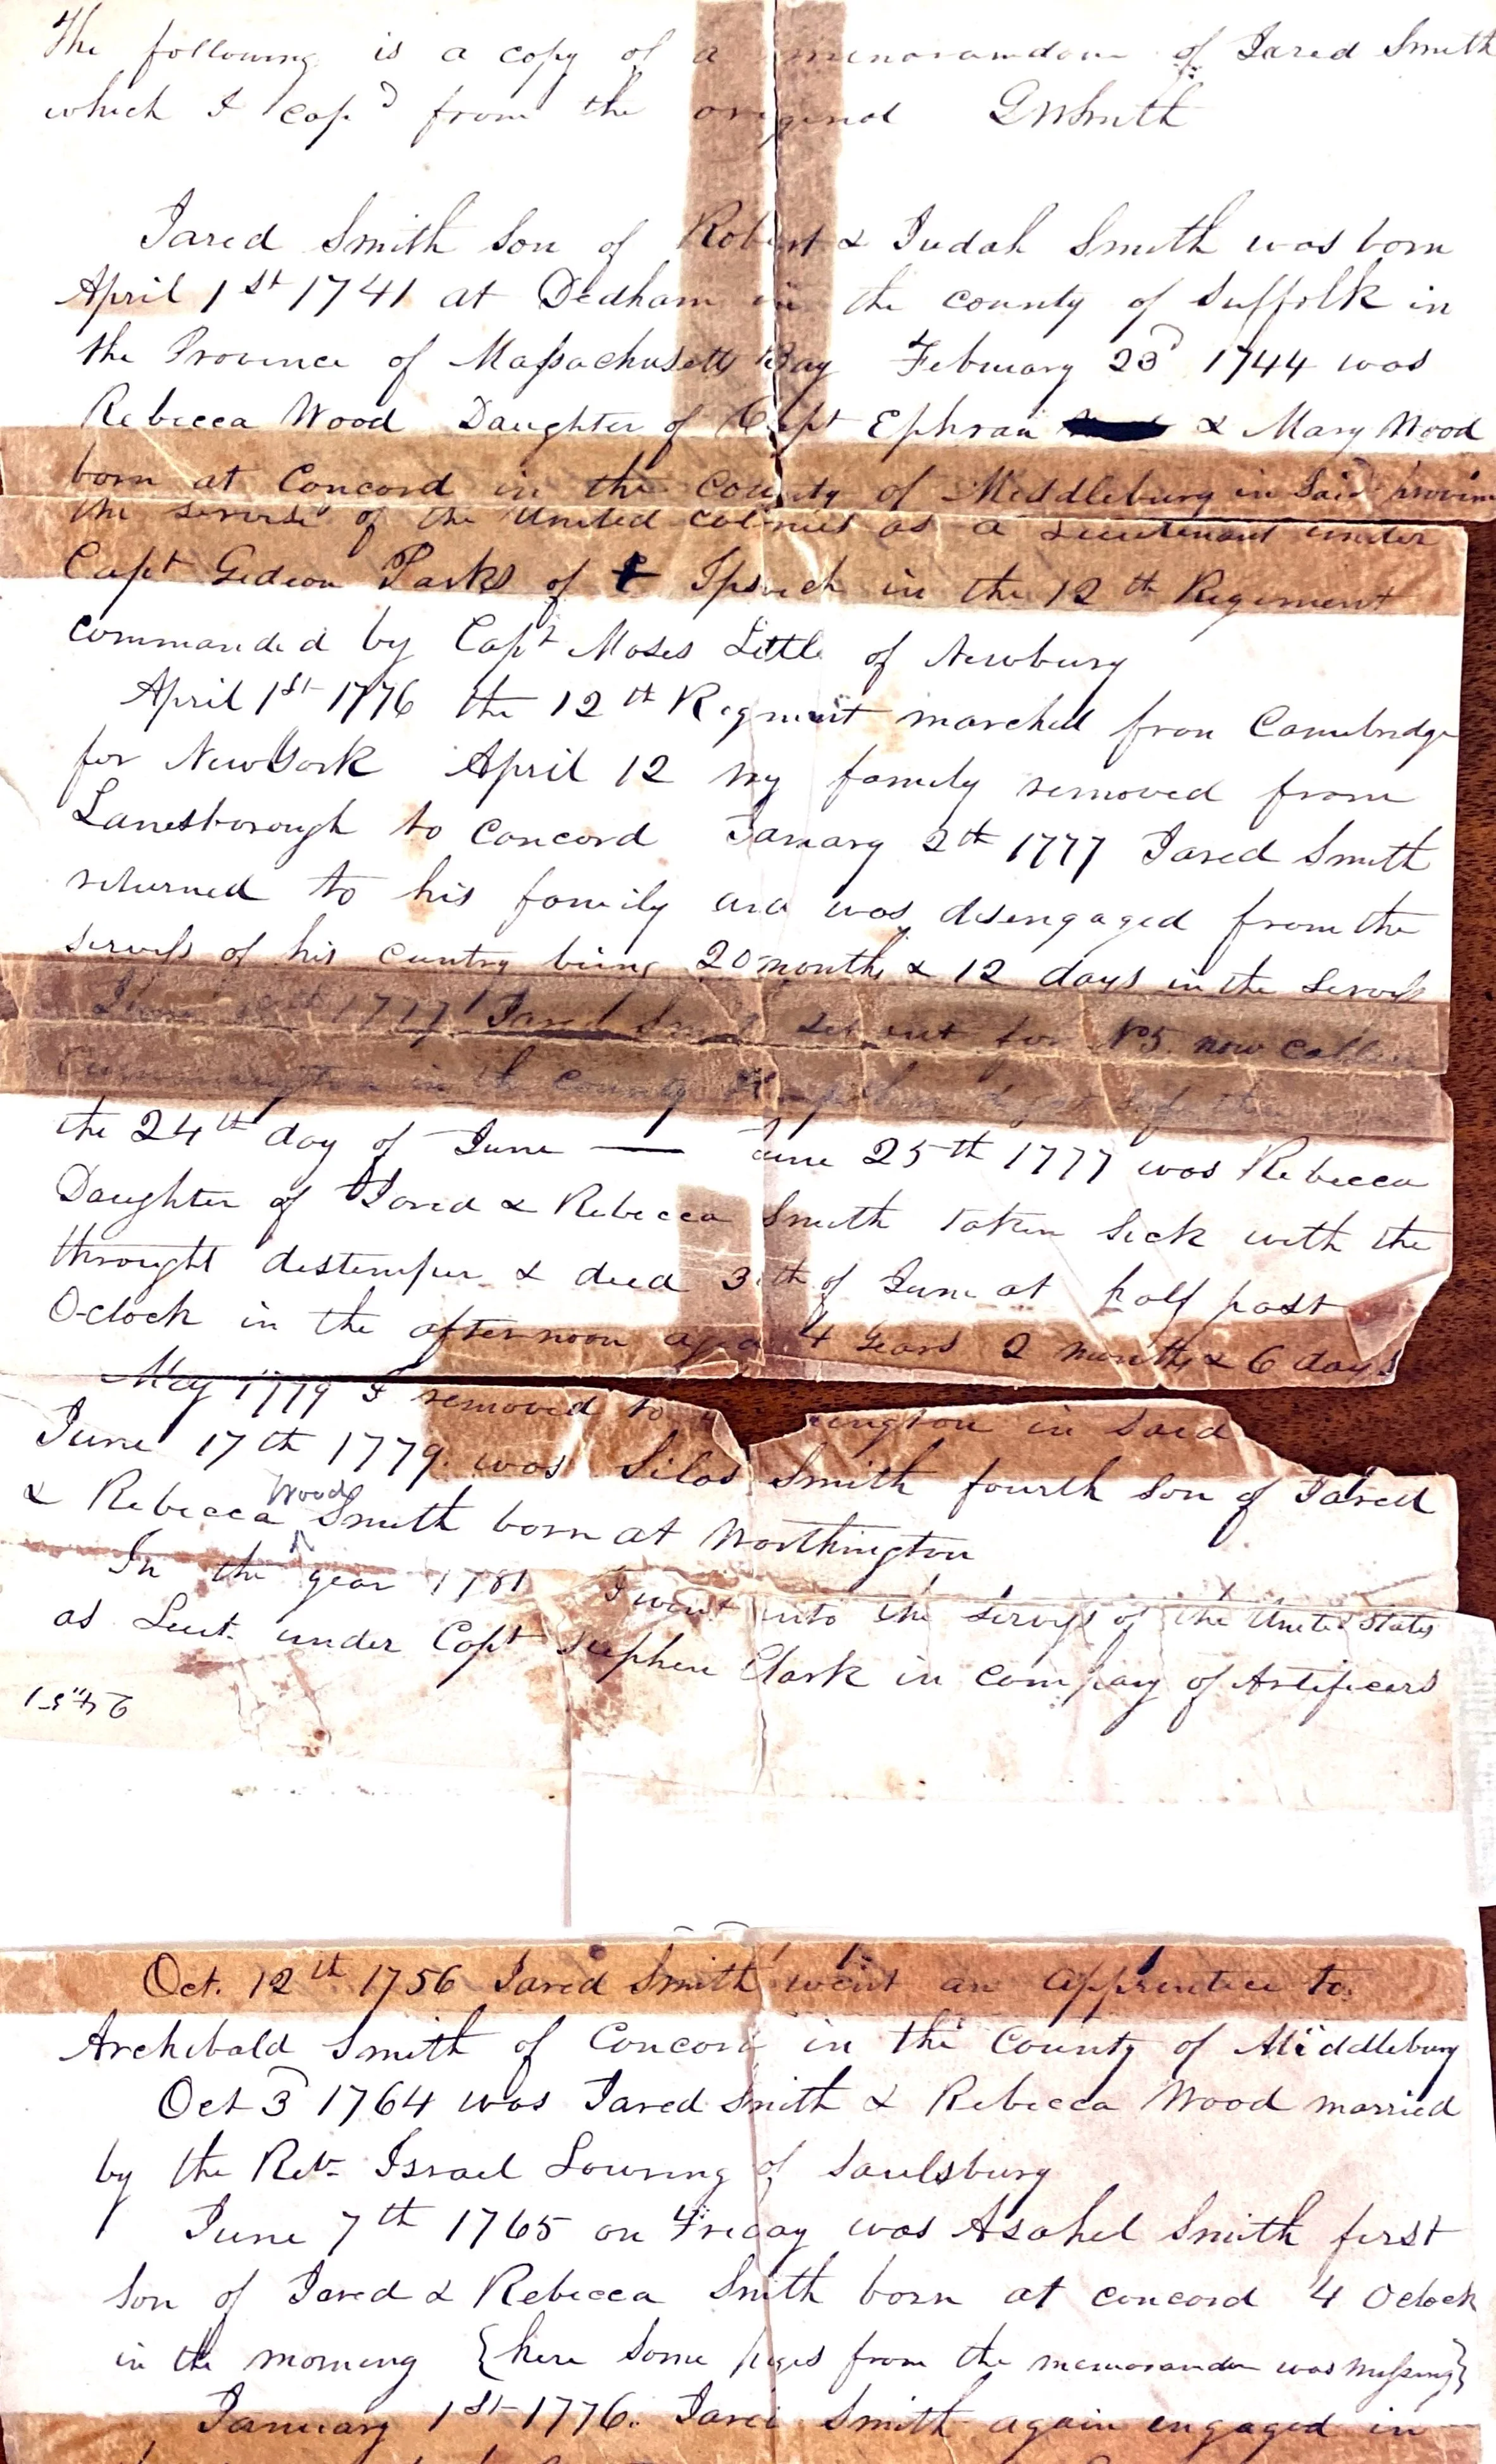 The following is a copy of a memorandom of Jared Smith
which I cop'd from the original GWSmith
Jared Smith Son of Robert & Judah Smith was born
April 1st 1741 at Dedham in the county of Suffolk in
the Province of Massachusetts Bay February 23d 1744 was
Rebecca Wood Daughter of Capt Ephraim & Mary Wood
born at Concord in the County of Middleburg in Said provinc
the servise of the United colonies as a Lieutenant under
Capt Gideon Parks of Ipswich in the 12th Regiment
commanded by Capt Moses Little of Newbury
April 1st 1776 the 12th Regment marched from Cambridge
for New York April 12 my family removed from
Lanesborough to Concord January 2th 1777 Jared Smith
returned to his family and was disengaged from the
servess of his cuntry being 20 months & 12 days in the Servess
1777 Jared Smith Set out for No 5 now called
in the County
the 24th day of June — June 25th 1777 was Rebecca
Daughter of Jared & Rebecca Smith taken Sick with the
throught distemper & died of June at half past
Oclock in the afternoon aged 4 years 2 months & 6 days
May 1779 I removed to ington in Said
June 17th 1779 was Silas Smith fourth Son of Jared
& Rebecca Wood Smith born at Worthington
In the year 1781 I went into the Servess of the United States
as Leut. under Capt Stephen Clark in company of Artificers
Oct. 12th 1756 Jared Smith went an apprentice to
Archibald Smith of Concord in the County of Middleburg
Oct 3d 1764 was Jared Smith & Rebecca Wood married
by the Rev. Israel Louring of Saulsburg
June 7th 1765 on Friday was Asahel Smith first
Son of Jared & Rebecca Smith born at concord 4 Oclock
in the morning {here some pages from the memorandon was missing}
January 1st 1776. Jared Smith again engaged in